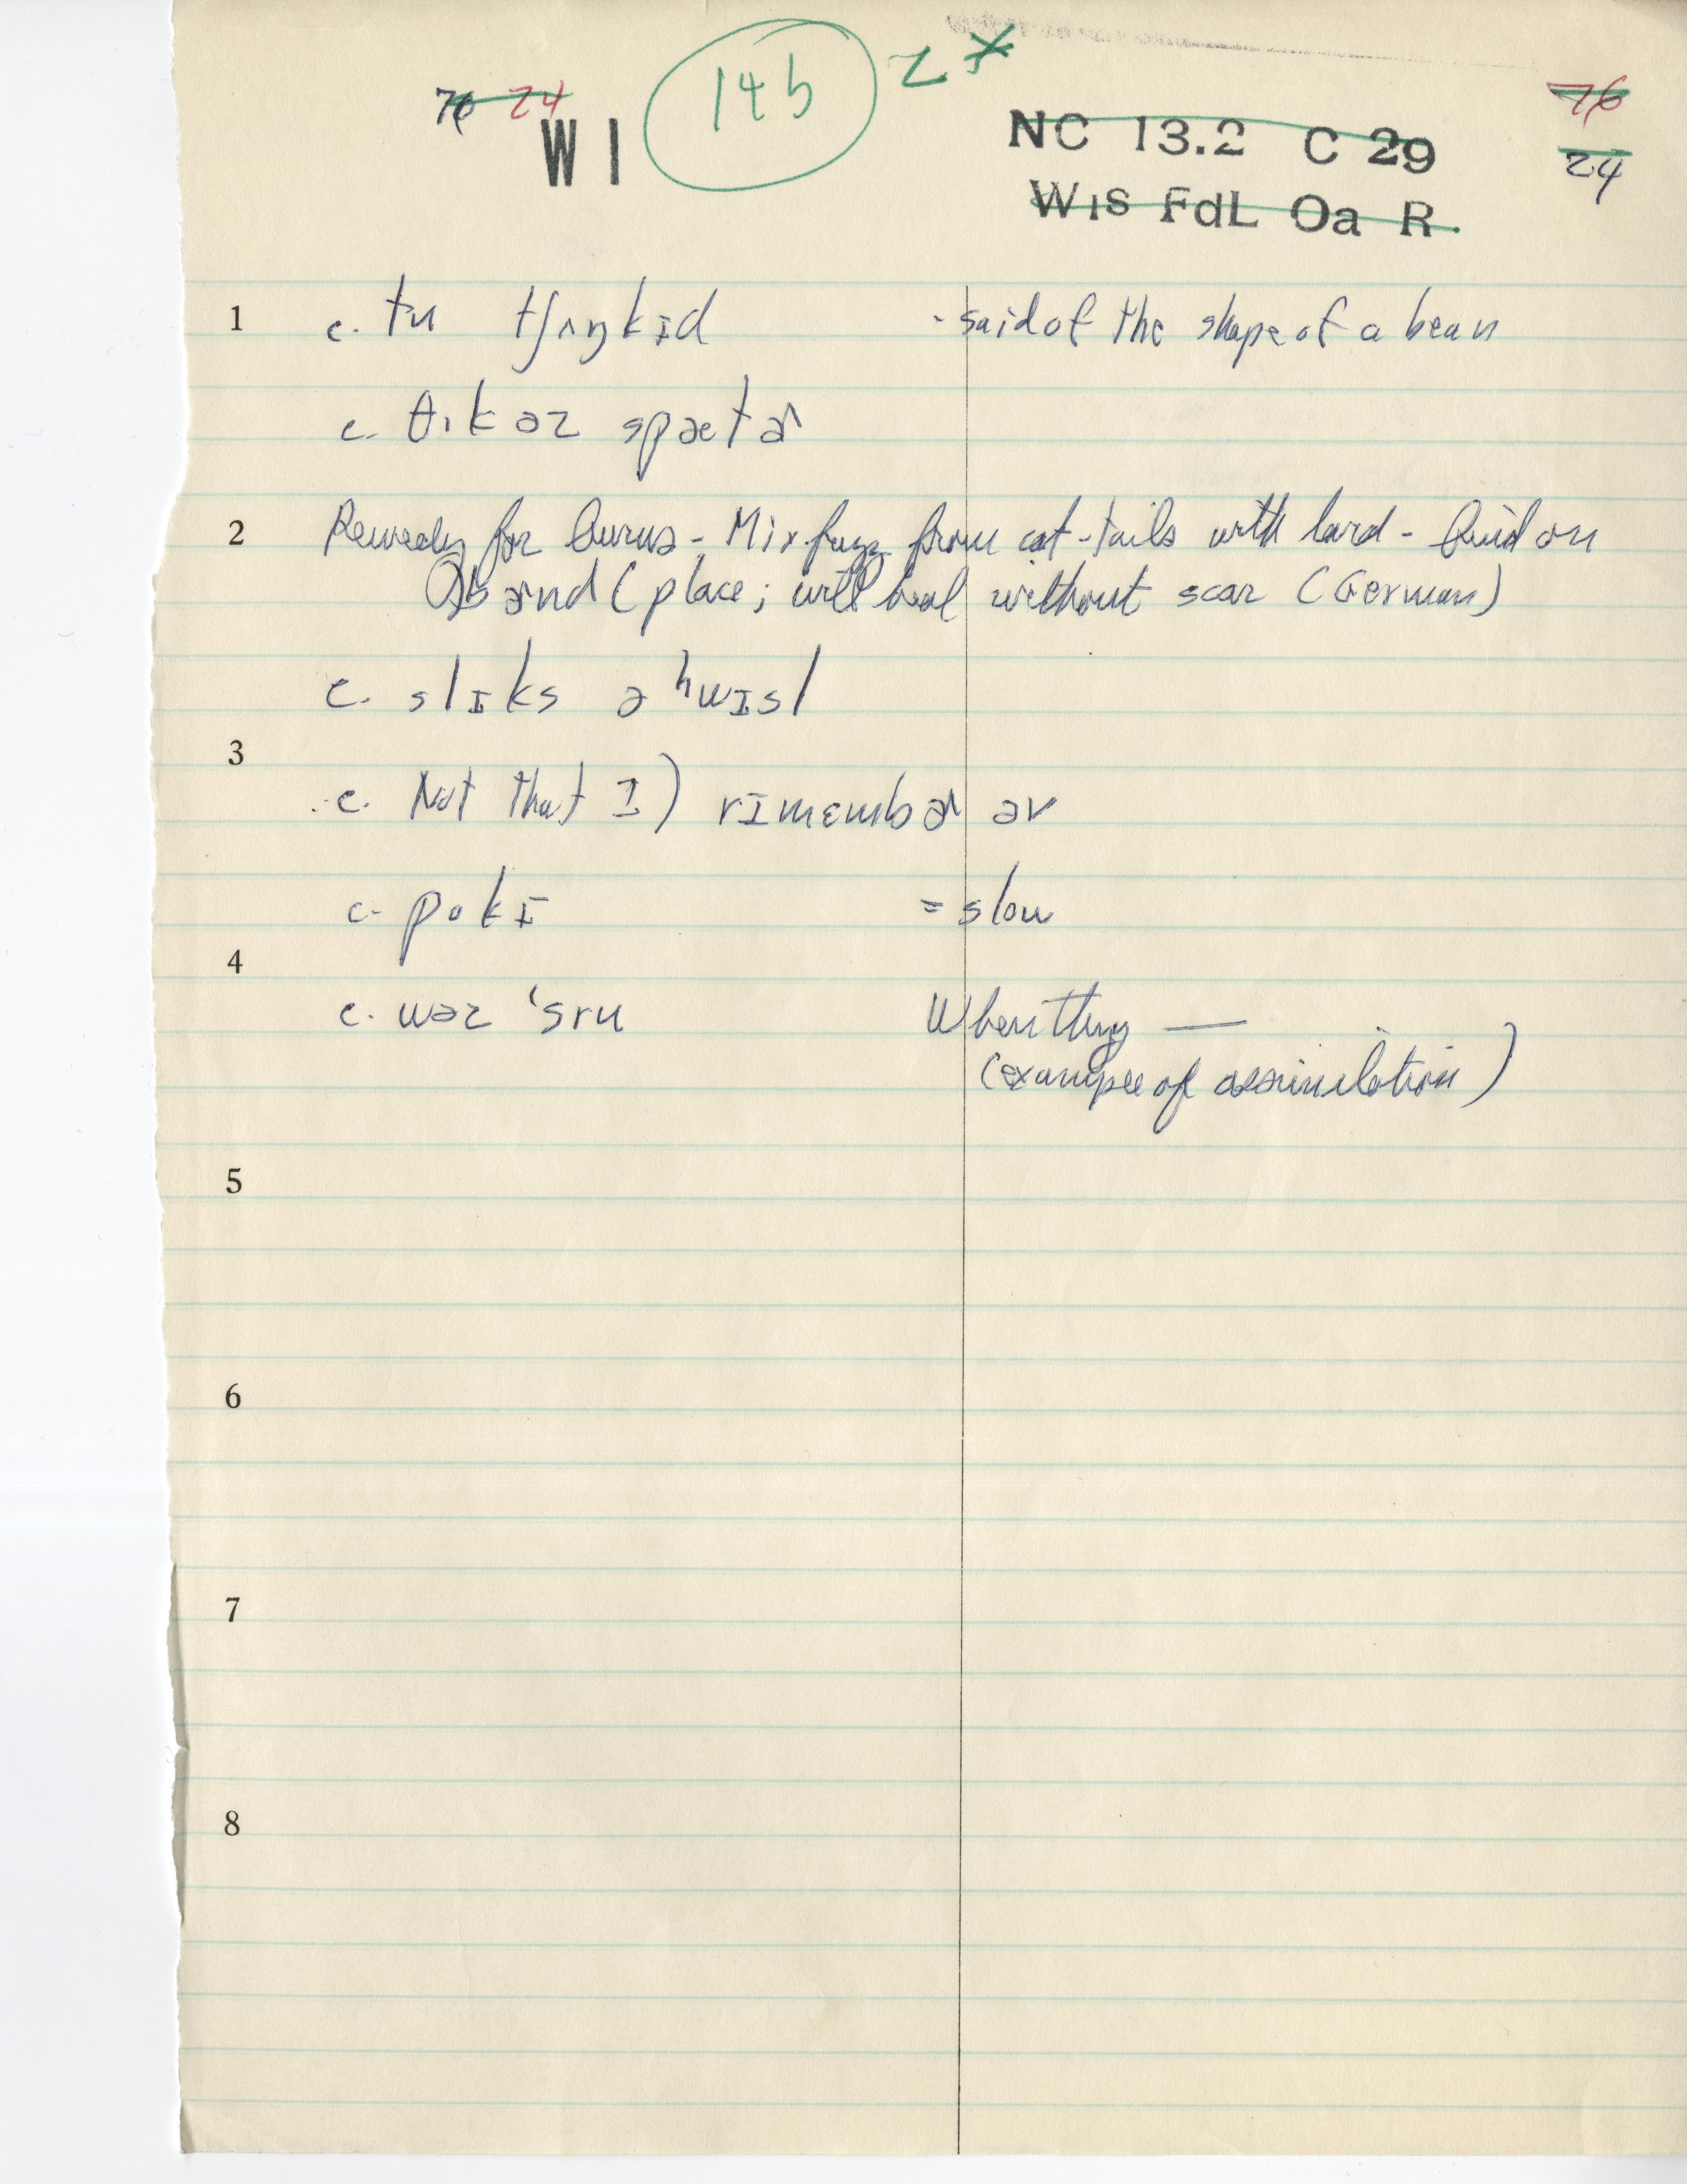 76 24
W I
14b
2 *
NC 13.2 C 29
Wis FdL Oa R.
76
24
1
c. tu tʃʌŋkɪd - said of the shape of a bean
c. θɪk əz spætɚ
2
Remedy for burns - Mix fuzz from cat-tails with lard - bind on
bɚnd (place; will heal without scar (German)
c. slɪk s ə hwɪsl
3
c. Not that I) rɪmɛmbɚ əv
c. pokɪ = slow
4
c. wəz 'sru When they —
(example of assimilation)
5
6
7
8